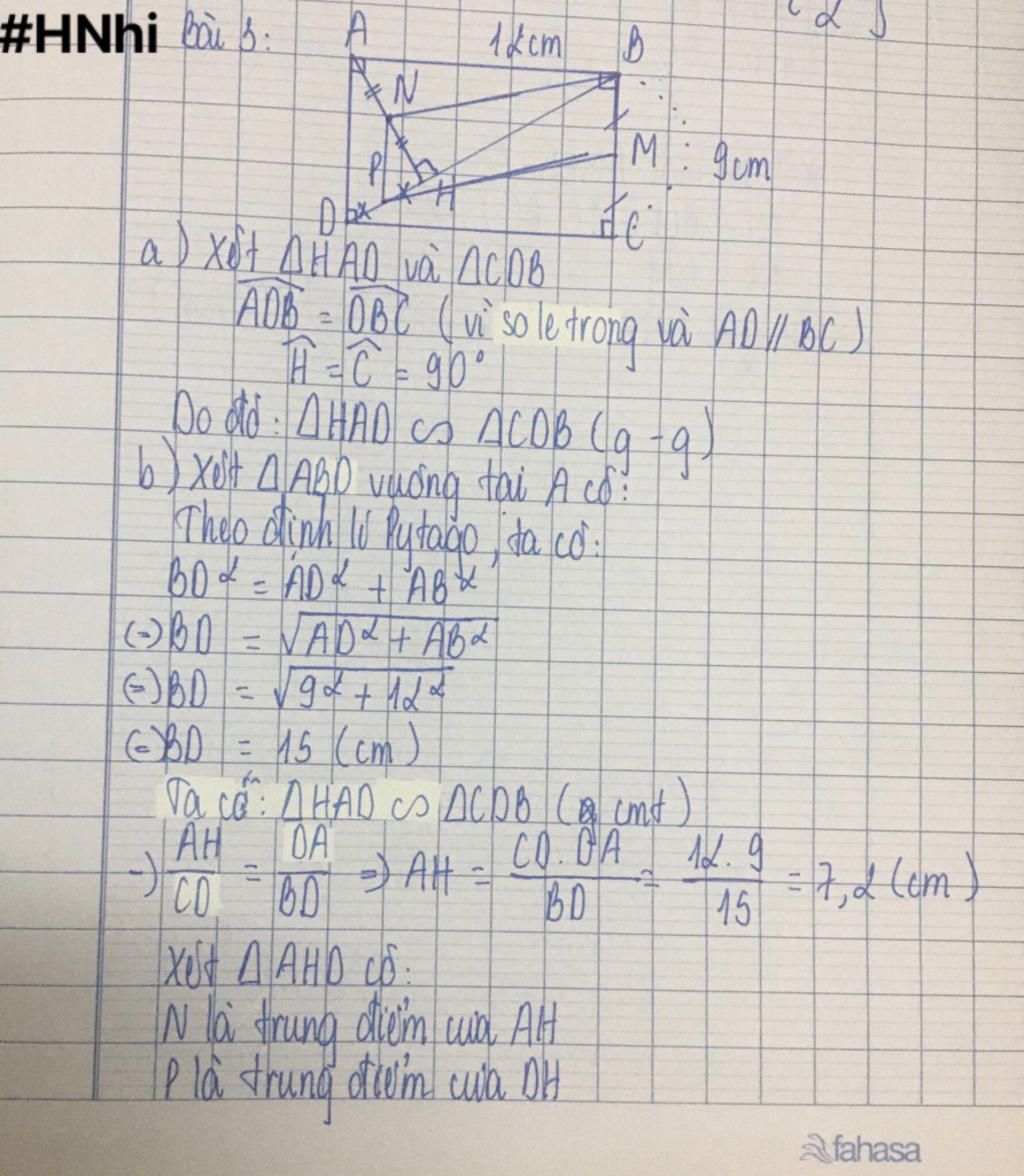 #HNhi Bài 3:
A 12cm B
N
M 9cm
P H
D C
a) Xét ΔHAD và ΔCDB
ADB = DBC (vì so le trong và AD // BC)
Ĥ = Ĉ = 90°
Do đó: ΔHAD ∽ ΔCDB (g-g)
b) Xét ΔABD vuông tại A có:
Theo định lí Pytago, ta có:
BD² = AD² + AB²
(=) BD = √AD² + AB²
(=) BD = √9² + 12²
(=) BD = 15 (cm)
Ta có: ΔHAD ∽ ΔCDB (cmt)
→) AH/CD = DA/BD =) AH = CD.DA/BD = 12.9/15 = 7,2 (cm)
Xét ΔAHD có:
N là trung điểm của AH
P là trung điểm của DH
fahasa